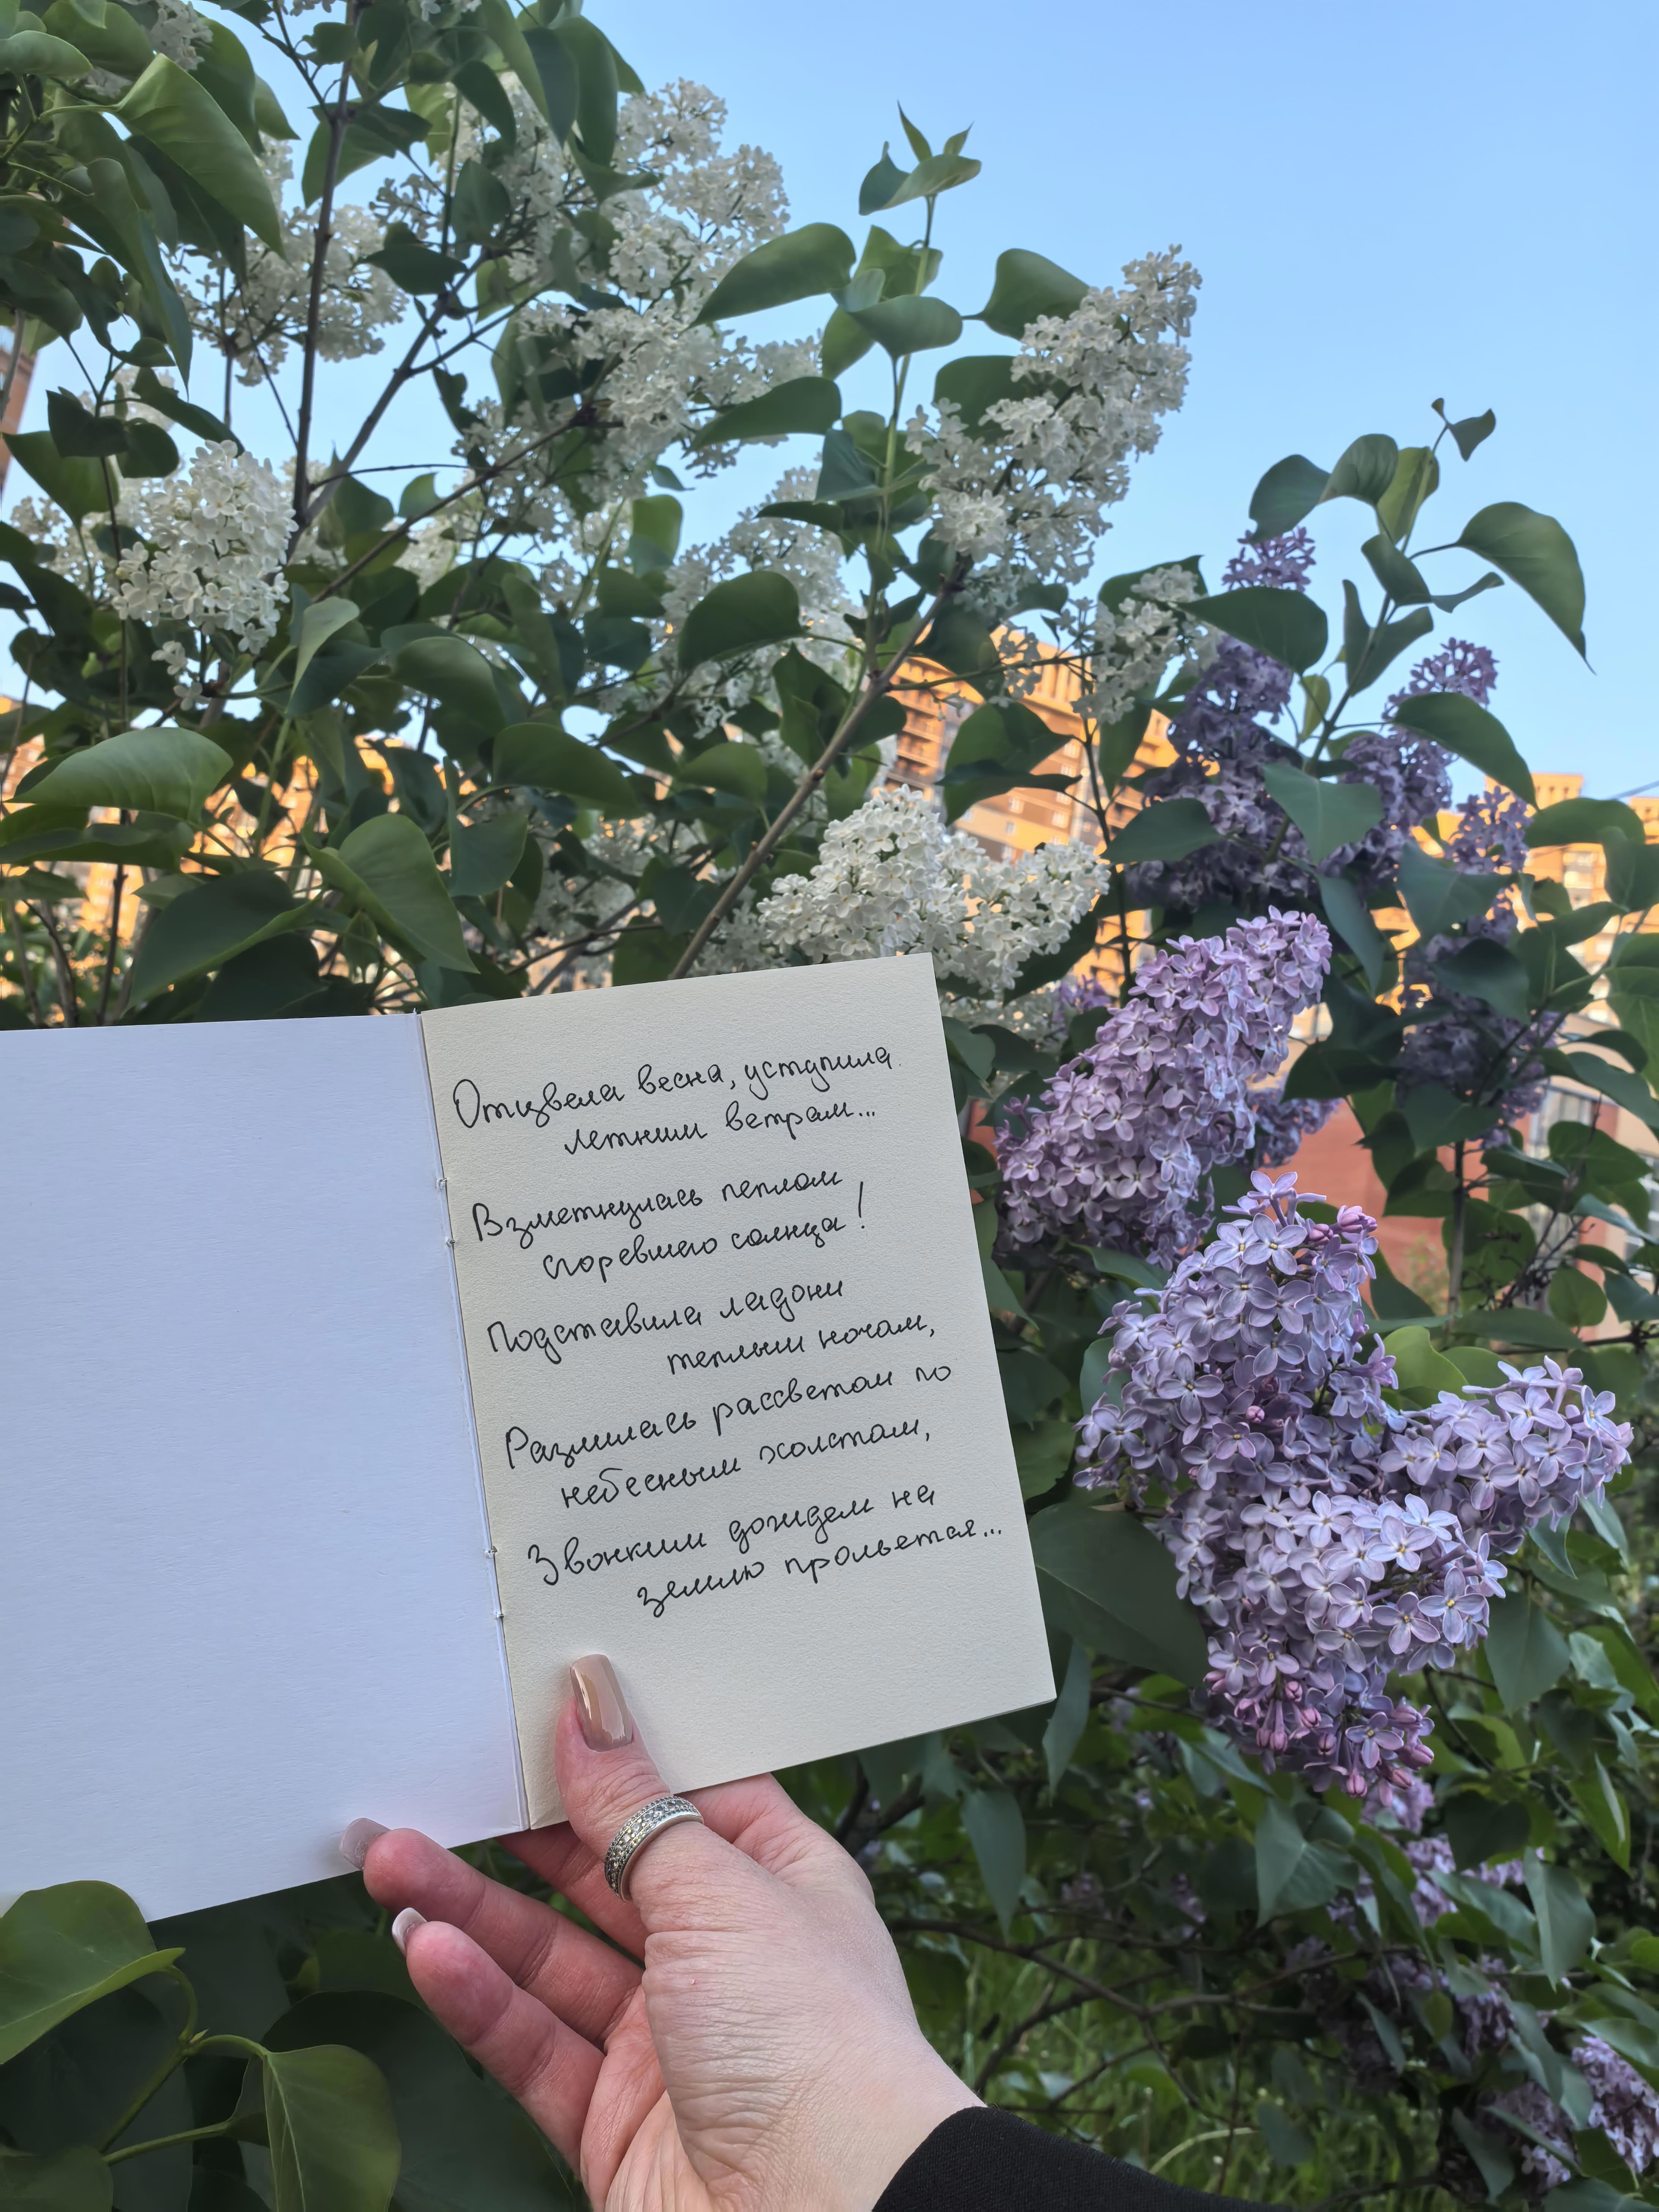 Отцвела весна, уступила
летним ветрам...
Взметнулась пеплом
сгоревшего солнца!
Подставила ладони
теплым ночам,
Разлилась рассветом по
небесным холстам,
Звонким дождем на
землю прольется...